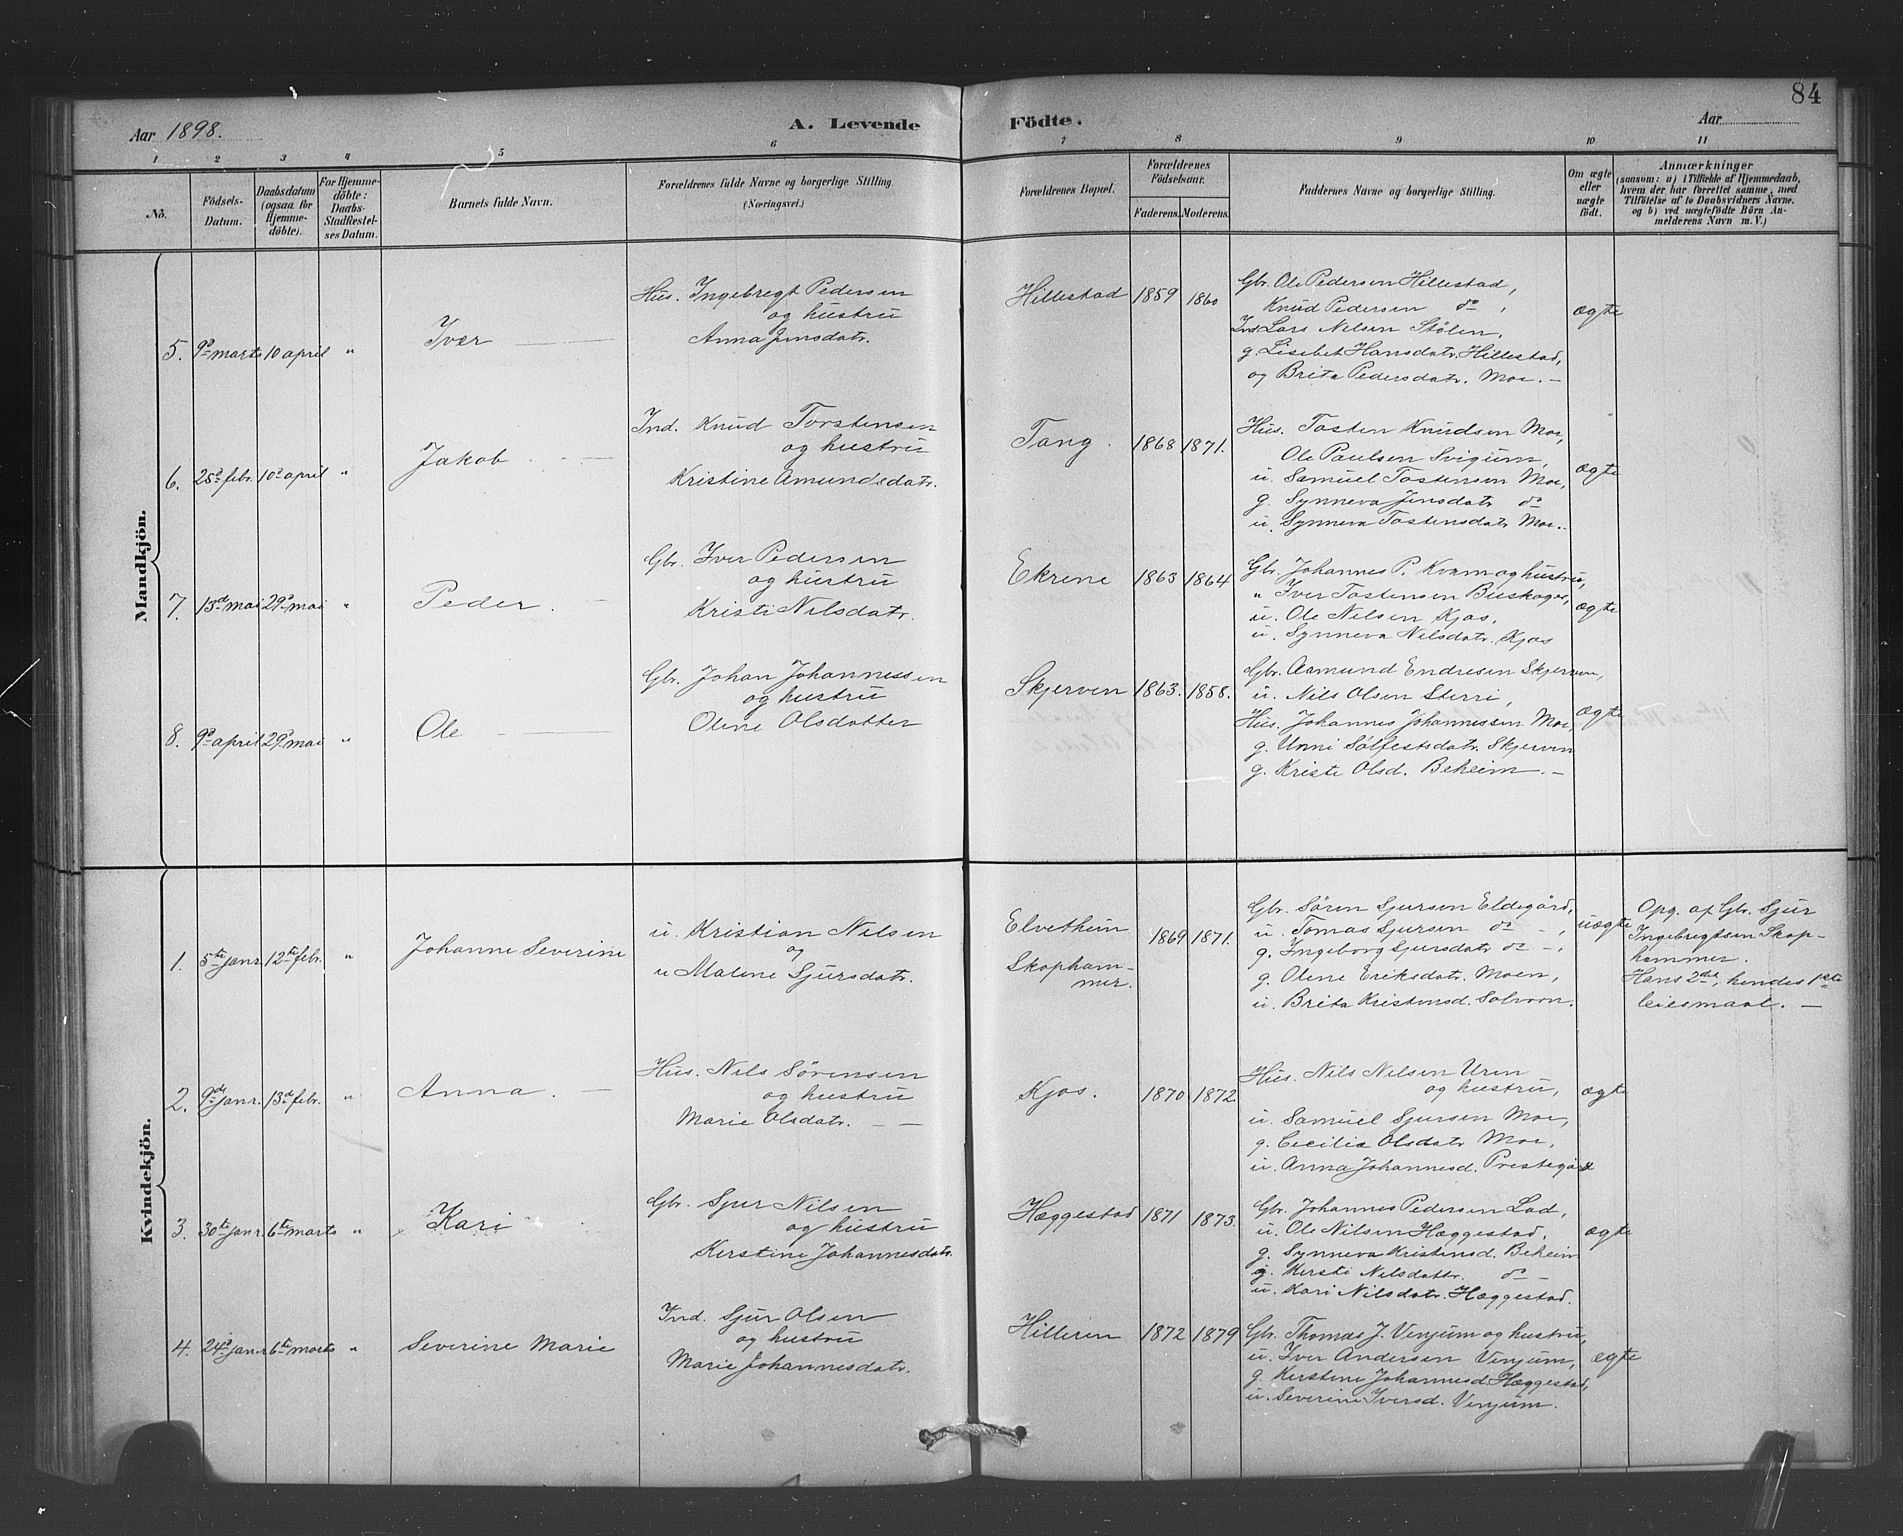 84
Aar 1898. A. Levende Födte. Aar
1 2 3 4 5 6 7 8 9 10 11
Nö.
Födsels-Datum.
Daabsdatum (ogsaa for Hjemme-döbte).
For Hjemme-döbte: Daabs-Stadfæstel-ses Datum.
Barnets fulde Navn.
Forældrenes fulde Navne og borgerlige Stilling.
(Næringsvei.)
Forældrenes Bopæl.
Forældrenes Födselsaar.
Faderens. Moderens.
Faddernes Navne og borgerlige Stilling.
Om ægte eller uægte födt.
Anmærkninger
(saasom: a) i Tilfælde af Hjemmedaab,
hvem der har forrettet samme, med
Tilföielse af to Daabsvidners Navne,
og b) ved uægtefödte Börn An-
melderens Navn m. V.)
Mandkjön.
5. 9de marts 10 april " Iver
Hus. Ingebregt Pedersen
og hustru
Anna Jensdatr.
Hillestad 1859 1860
Gbr. Ole Pedersen Hillestad,
Knud Pedersen do,
Ind Lars Nilsen Stölen,
g. Lisebet Hansdatr. Hillestad,
og Brita Pedersdatr. Moe. –
ægte
6. 25de febr. 10de april " Jakob
Ind. Knud Torstensen
og hustru
Kristine Amundsdatr.
Tang. 1868 1871.
Hus. Tosten Knudsen Moe,
Ole Paulsen Svigum,
u. Samuel Tostensen Moe,
g. Synneva Jensdatr do
u. Synneva Tostensdatr Moe.
ægte
7. 13de mai 29de mai " Peder.
Gbr. Iver Pedersen
og hustru
Kristi Nilsdatr.
Ekrene 1863 1864
Gbr. Johannes P. Kvam og hustru,
" Iver Tostensen Buskage,
u. Ole Nilsen Kjos,
u. Synneva Nilsdatr. Kjos
ægte
8. 9de april 29de mai " Ole
Gbr. Johan Johannessen
og hustru
Oline Olsdatter
Skjerven 1863. 1858.
Gbr. Aamund Endresen Skjerven,
u. Nils Olsen Sterri,
Hus. Johannes Johannessen Moe,
g. Unni Sölfestsdatr. Skjerven
g. Kristi Olsd. Beheim. –
ægte
Kvindekjön.
1. 5te janr. 12te febr. " Johanne Severine
u. Kristian Nilsen
og
u Malene Sjursdatr.
Elvethun
Skopham-
mer.
1869 1871.
Gbr. Sören Sjursen Eldegård,
u. Tomas Sjursen do – ,
g. Ingeborg Sjursdatr do – ,
g. Oline Eriksdatr. Moen,
u. Brita Kristensd. Solvorn.
uægte
Opg. af Gbr. Sjur
Ingebregtsen Skop-
hammer.
Hans 2det, hendes 1ste
leiesmaal. –
2. 9de janr. 13de febr. " Anna.
Hus. Nils Sörensen
og hustru
Marie Olsdatr.
Kjos. 1870 1872
Hus. Nils Nilsen Uren
og hustru,
u. Samuel Sjursen Moe,
g. Cecilia Olsdatr Moe,
u. Anna Johannesd. Prestegård
ægte
3. 30te janr. 6te marts " Kari
Gbr. Sjur Nilsen
og hustru
Kerstine Johannesdatr.
Hæggestad 1871 1873.
Gbr. Johannes Pedersen Lad,
u. Ole Nilsen Hæggestad,
g. Synneva Kristensd. Beheim
g. Kersti Nilsdattr. do –
u. Kari Nilsdatr. Hæggestad.
ægte
4. 24de janr 6te marts " Severine Marie
Ind. Sjur Olsen
og hustru
Marie Johannesdatr.
Hilleren 1872 1879
Gbr. Thomas J. Venjum og hustru,
u. Iver Andersen Venjum,
g. Kerstine Johannesd Hæggestad,
u. Severine Iversd. Venjum.
ægte